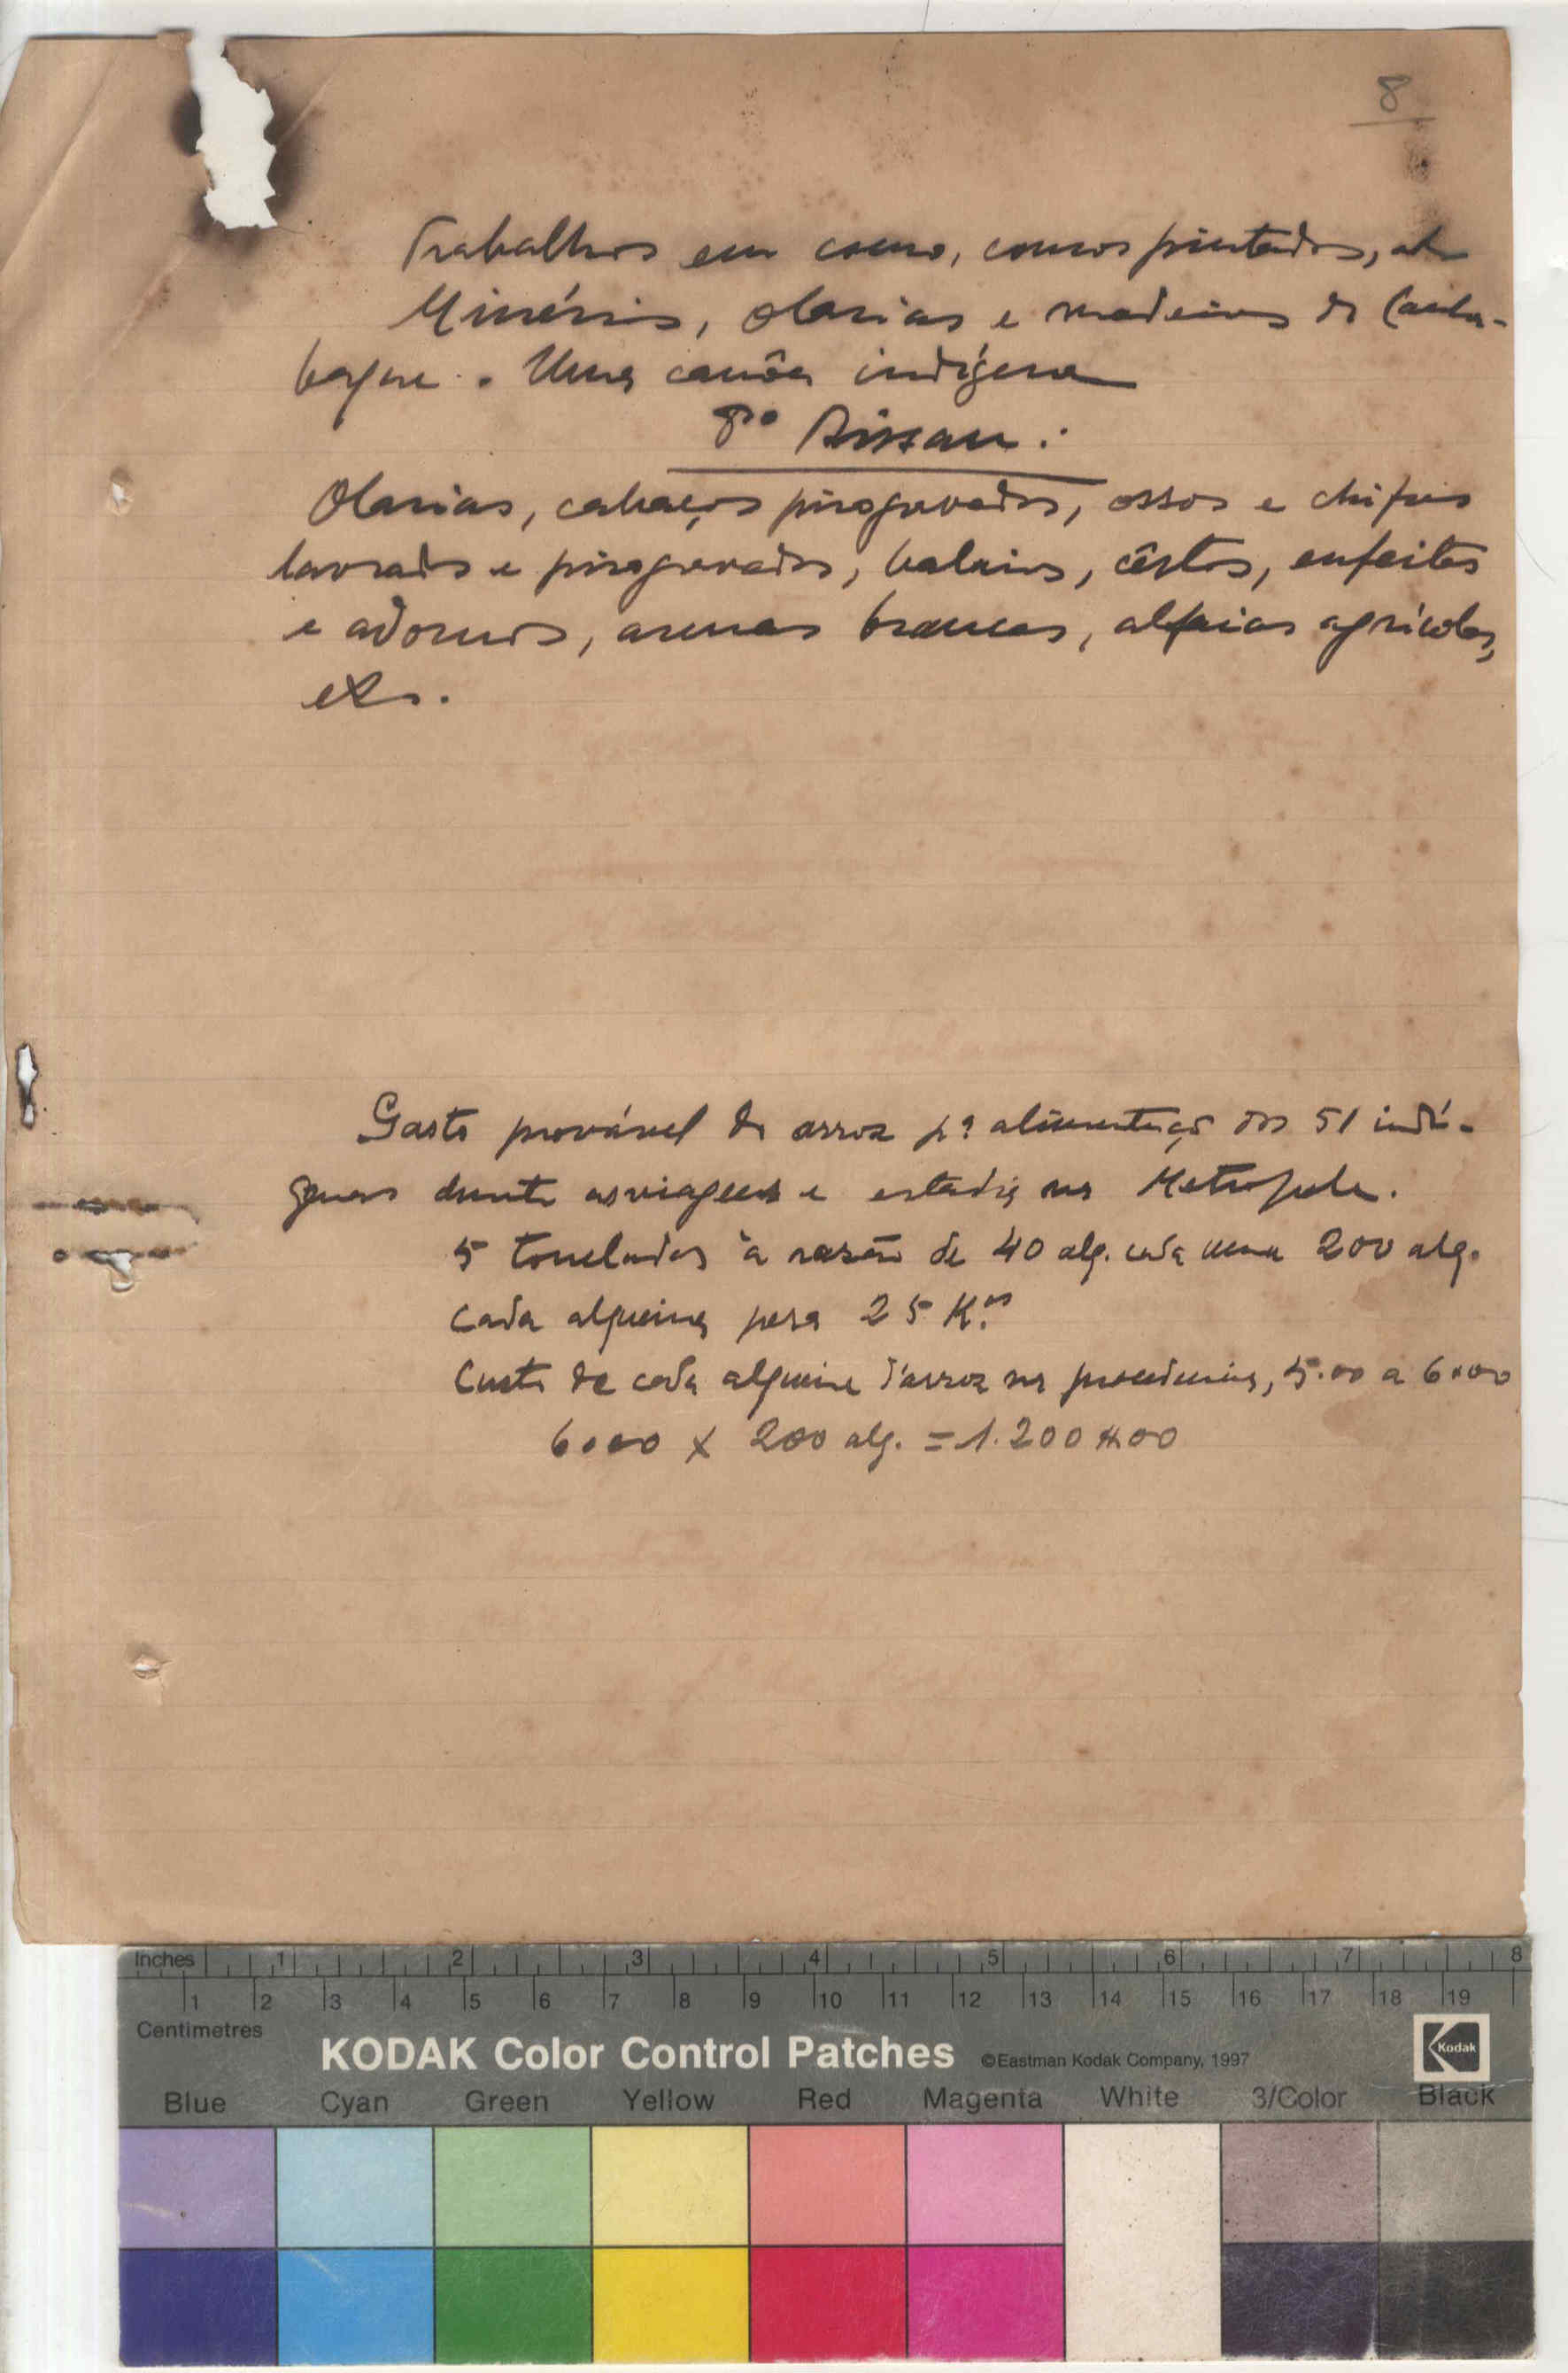 8
Trabalhos em couro, couros pintados, etc
Minérios, olarias e madeiras de Canta-
baque. Uma canôa indígena
8º Bissau:
Olarias, cabaços pirogravados, ossos e chifres
lavrados e pirogravados, balaios, cêstos, enfeites
e adornos, armas brancas, alfaias agrícolas,
etc.
Gasto provável de arroz pª alimentação dos 51 indí-
genas durante as viagens e estadia na Metropole.
5 toneladas à razão de 40 alq. cada uma 200 alq.
Cada alqueire pesa 25 K.os
Custo de cada alqueire d'arroz na procedencia, 5.00 a 6.00
6.00 x 200 alq. = 1.200$00
Inches 1 2 3 4 5 6 7 8
1 2 3 4 5 6 7 8 9 10 11 12 13 14 15 16 17 18 19
Centimetres
KODAK Color Control Patches ©Eastman Kodak Company, 1997 Kodak
Blue Cyan Green Yellow Red Magenta White 3/Color Black